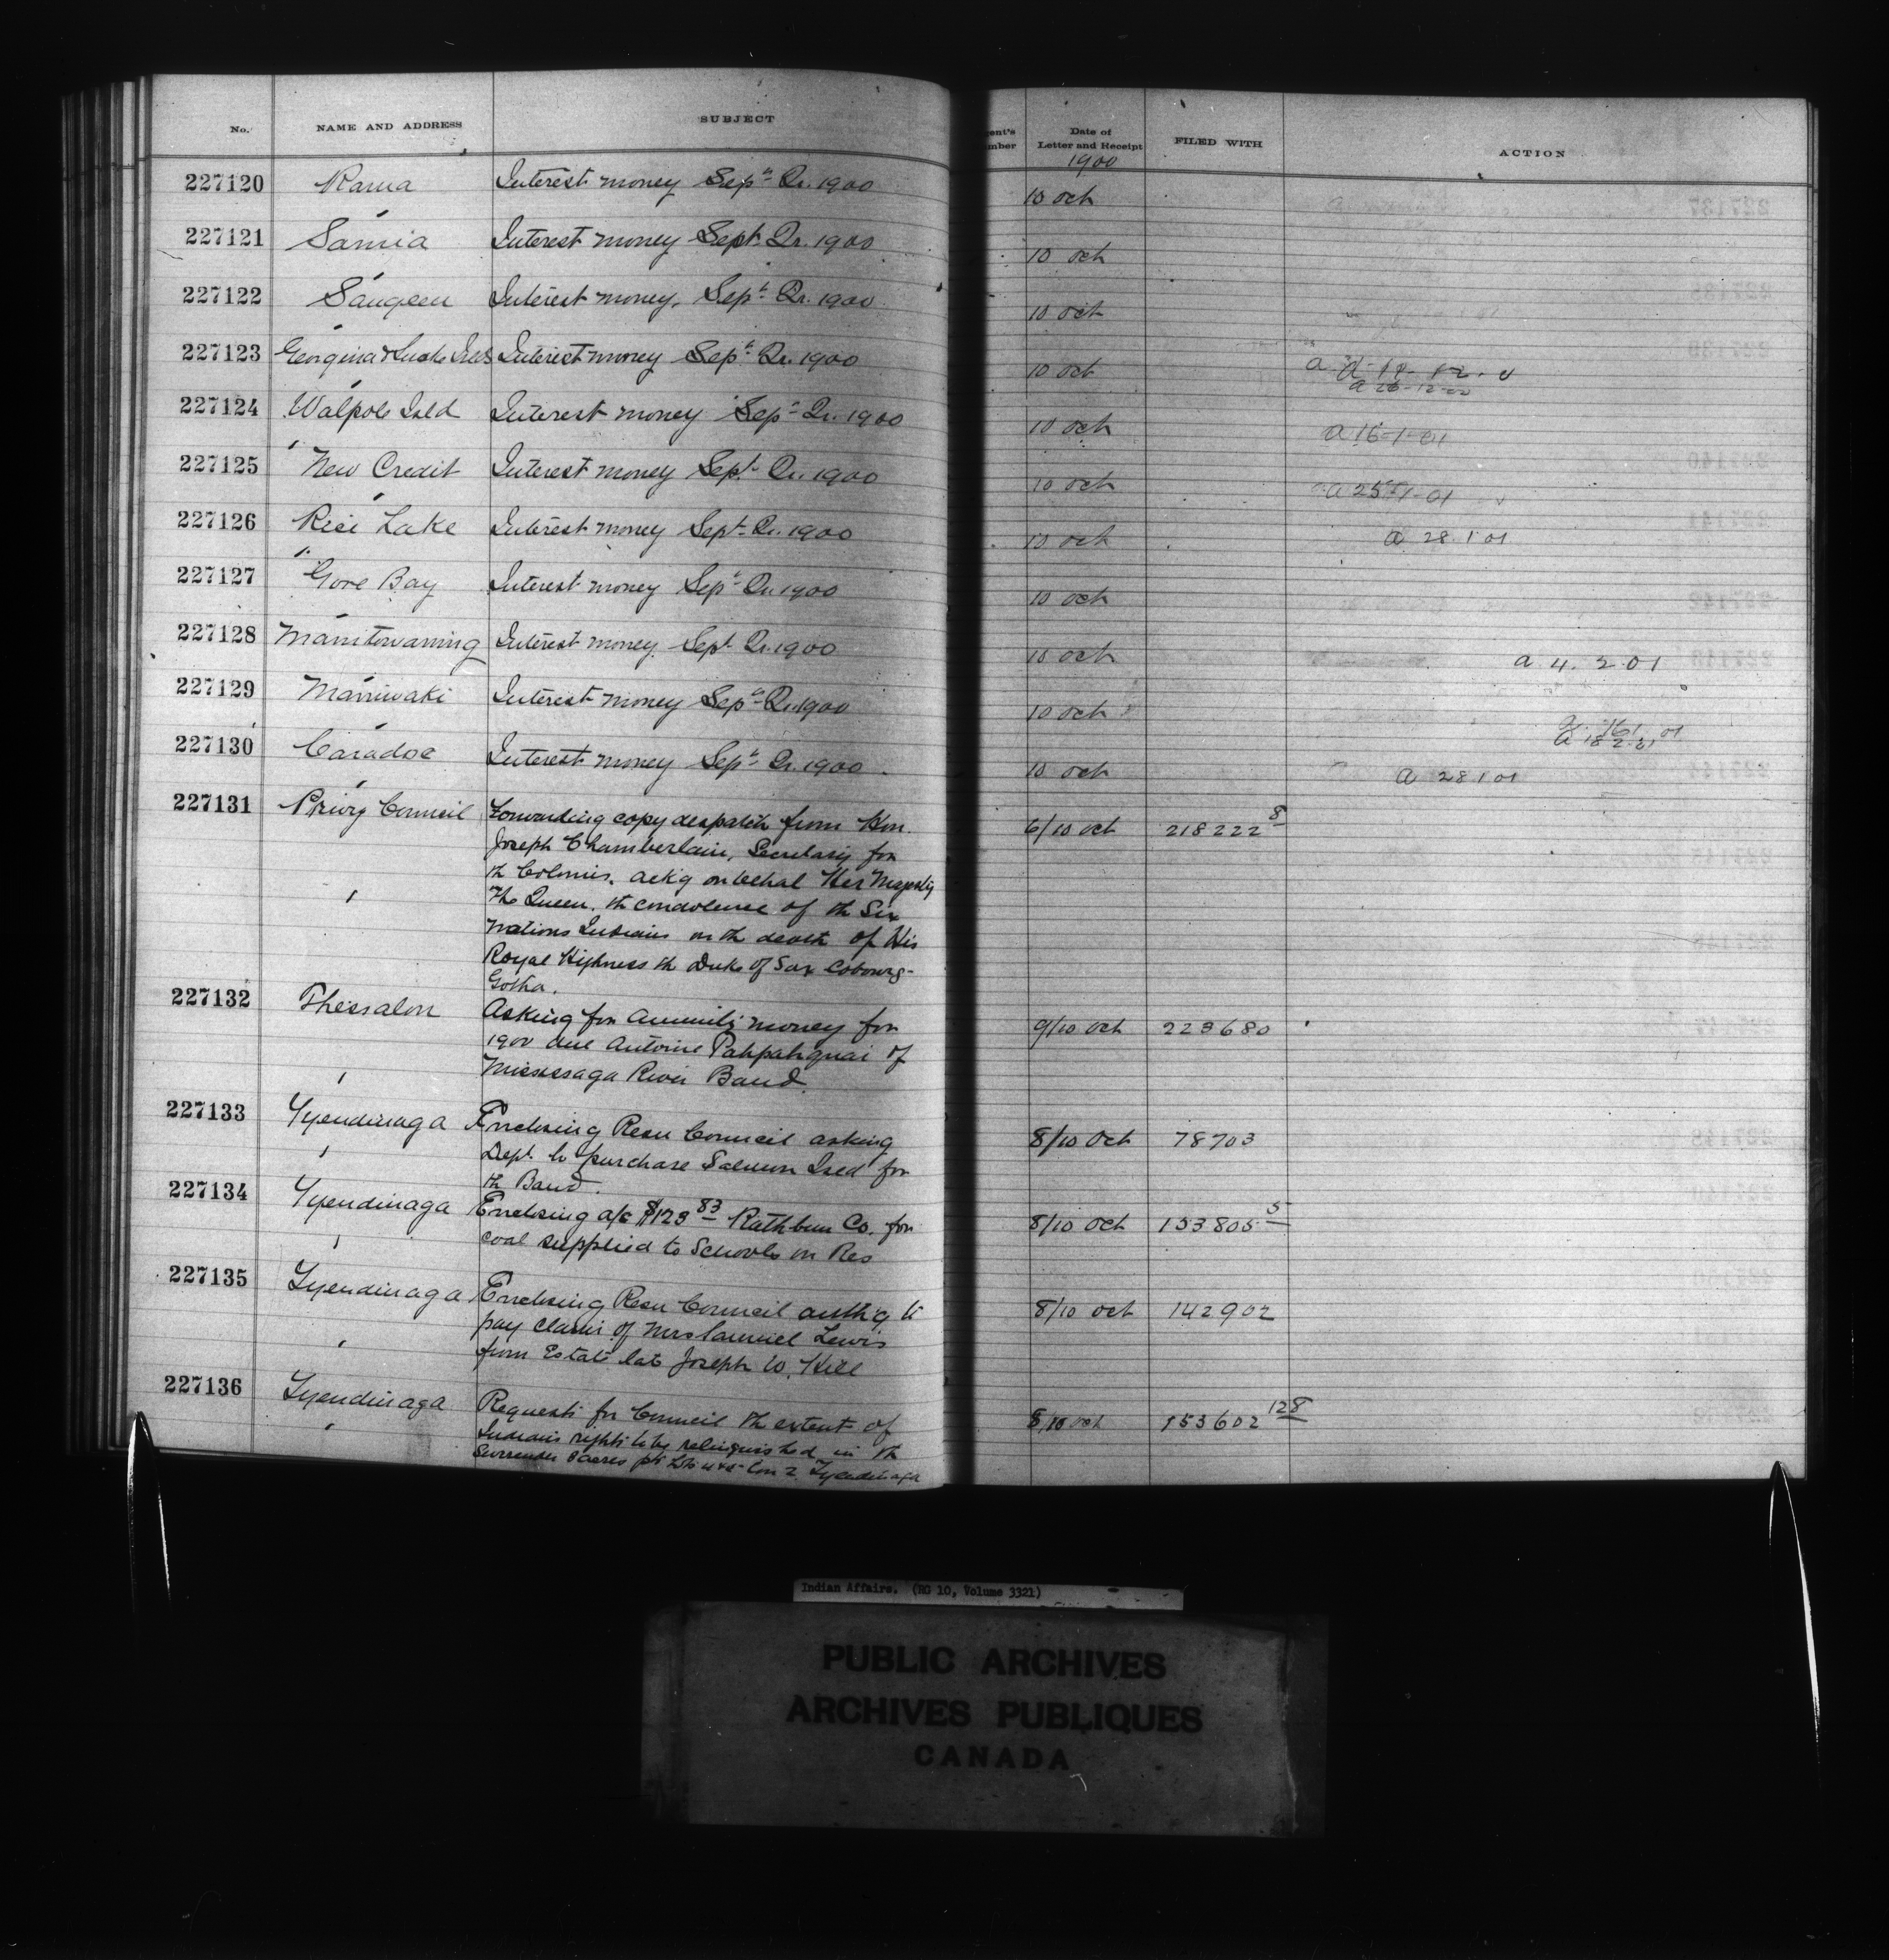 No. NAME AND ADDRESS SUBJECT gent's mber Date of Letter and Receipt FILED WITH ACTION
1900
227120 Rama Interest money Sept Qr. 1900 10 Oct
227121 Sarnia Interest money Sept Qr. 1900 10 Oct
227122 Saugeen Interest money. Sept Qr. 1900 10 Oct
227123 Georgina & Snake Islds Interest money Sept Qr. 1900 10 Oct
a 26-12-00
227124 Walpole Isld Interest money Sept Qr. 1900 10 Oct a 16-1-01
227125 New Credit Interest money Sept Qr. 1900 10 Oct a 25-1-01
227126 Rice Lake Interest money Sept Qr. 1900 10 Oct a 28 1 01
227127 Gore Bay Interest money Sept Qr 1900 10 Oct
227128 Manitowaning Interest money. Sept Qr. 1900 10 Oct a 4. 2. 01
227129 Maniwaki Interest money Sept Qr. 1900 10 Oct
a 18 2 01
227130 Caradoc Interest money Sept Qr. 1900. 10 Oct a 28 1 01
227131 Privy Council Forwarding copy despatch from Hon. 6/10 Oct 218222 8
Joseph Chamberlain, Secretary for
th Colonies. ack'g on behal Her Majesty
The Queen. th condolence of th Six
Nations Indians on th death of His
Royal Highness th Duke of Sax Cobourg-
Gotha.
227132 Thessalon Asking for Annuity money for 9/10 Oct 223680
1900 due Antoine Pahpahquai of
Mississaga River Band.
227133 Tyendinaga Enclosing Resn Council asking 8/10 Oct 78703
Dept. to purchase Salmon Isld for
th Band.
227134 Tyendinaga Enclosing a/c $123 83 Rathbun Co. for 8/10 Oct 153805 5
coal supplied to Schools on Res
227135 Tyendinaga Enclosing Resn Council auth'g to 8/10 Oct 142902
pay claim of Mrs Samuel Lewis
from Estate late Joseph W. Hill
227136 Tyendinaga Requests for Council th extent of 8/10 Oct 153602 128
Indians rights to be relinquished in th
Surrender 8 acres pt Lots 4 & 5 Con 2 Tyendinaga
Indian Affairs. (RG 10, Volume 3321)
PUBLIC ARCHIVES
ARCHIVES PUBLIQUES
CANADA